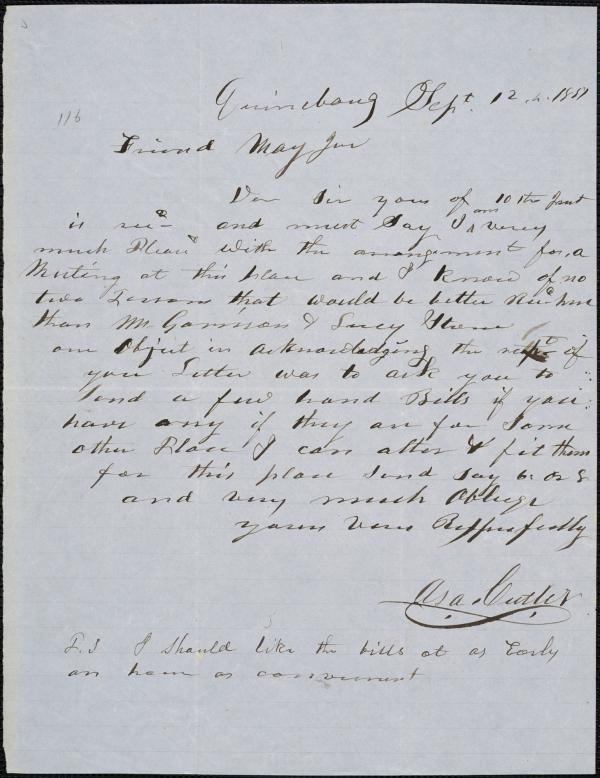 Quinebaug Sept. 12, 1851
116
Friend May Jnr
Der Sir yours of 10th Inst
is recd and must Say I am verey
much Pleasd with the arrangement for a
Meeting at this place and I know of no
two Persons that would be better Recd here
than Mr Garrison & Lucy Stone
one Object in acknowledging the rect of
your Letter was to ask you to
Send a few hand Bills if you
have any if they are for Some
other Place I can alter & fit them
for this place Send Say 6 or 8
and very much Oblige
yours Very Respectfully
Asa Cutler
P.S I Should like the bills at as Early
an hour as convenient